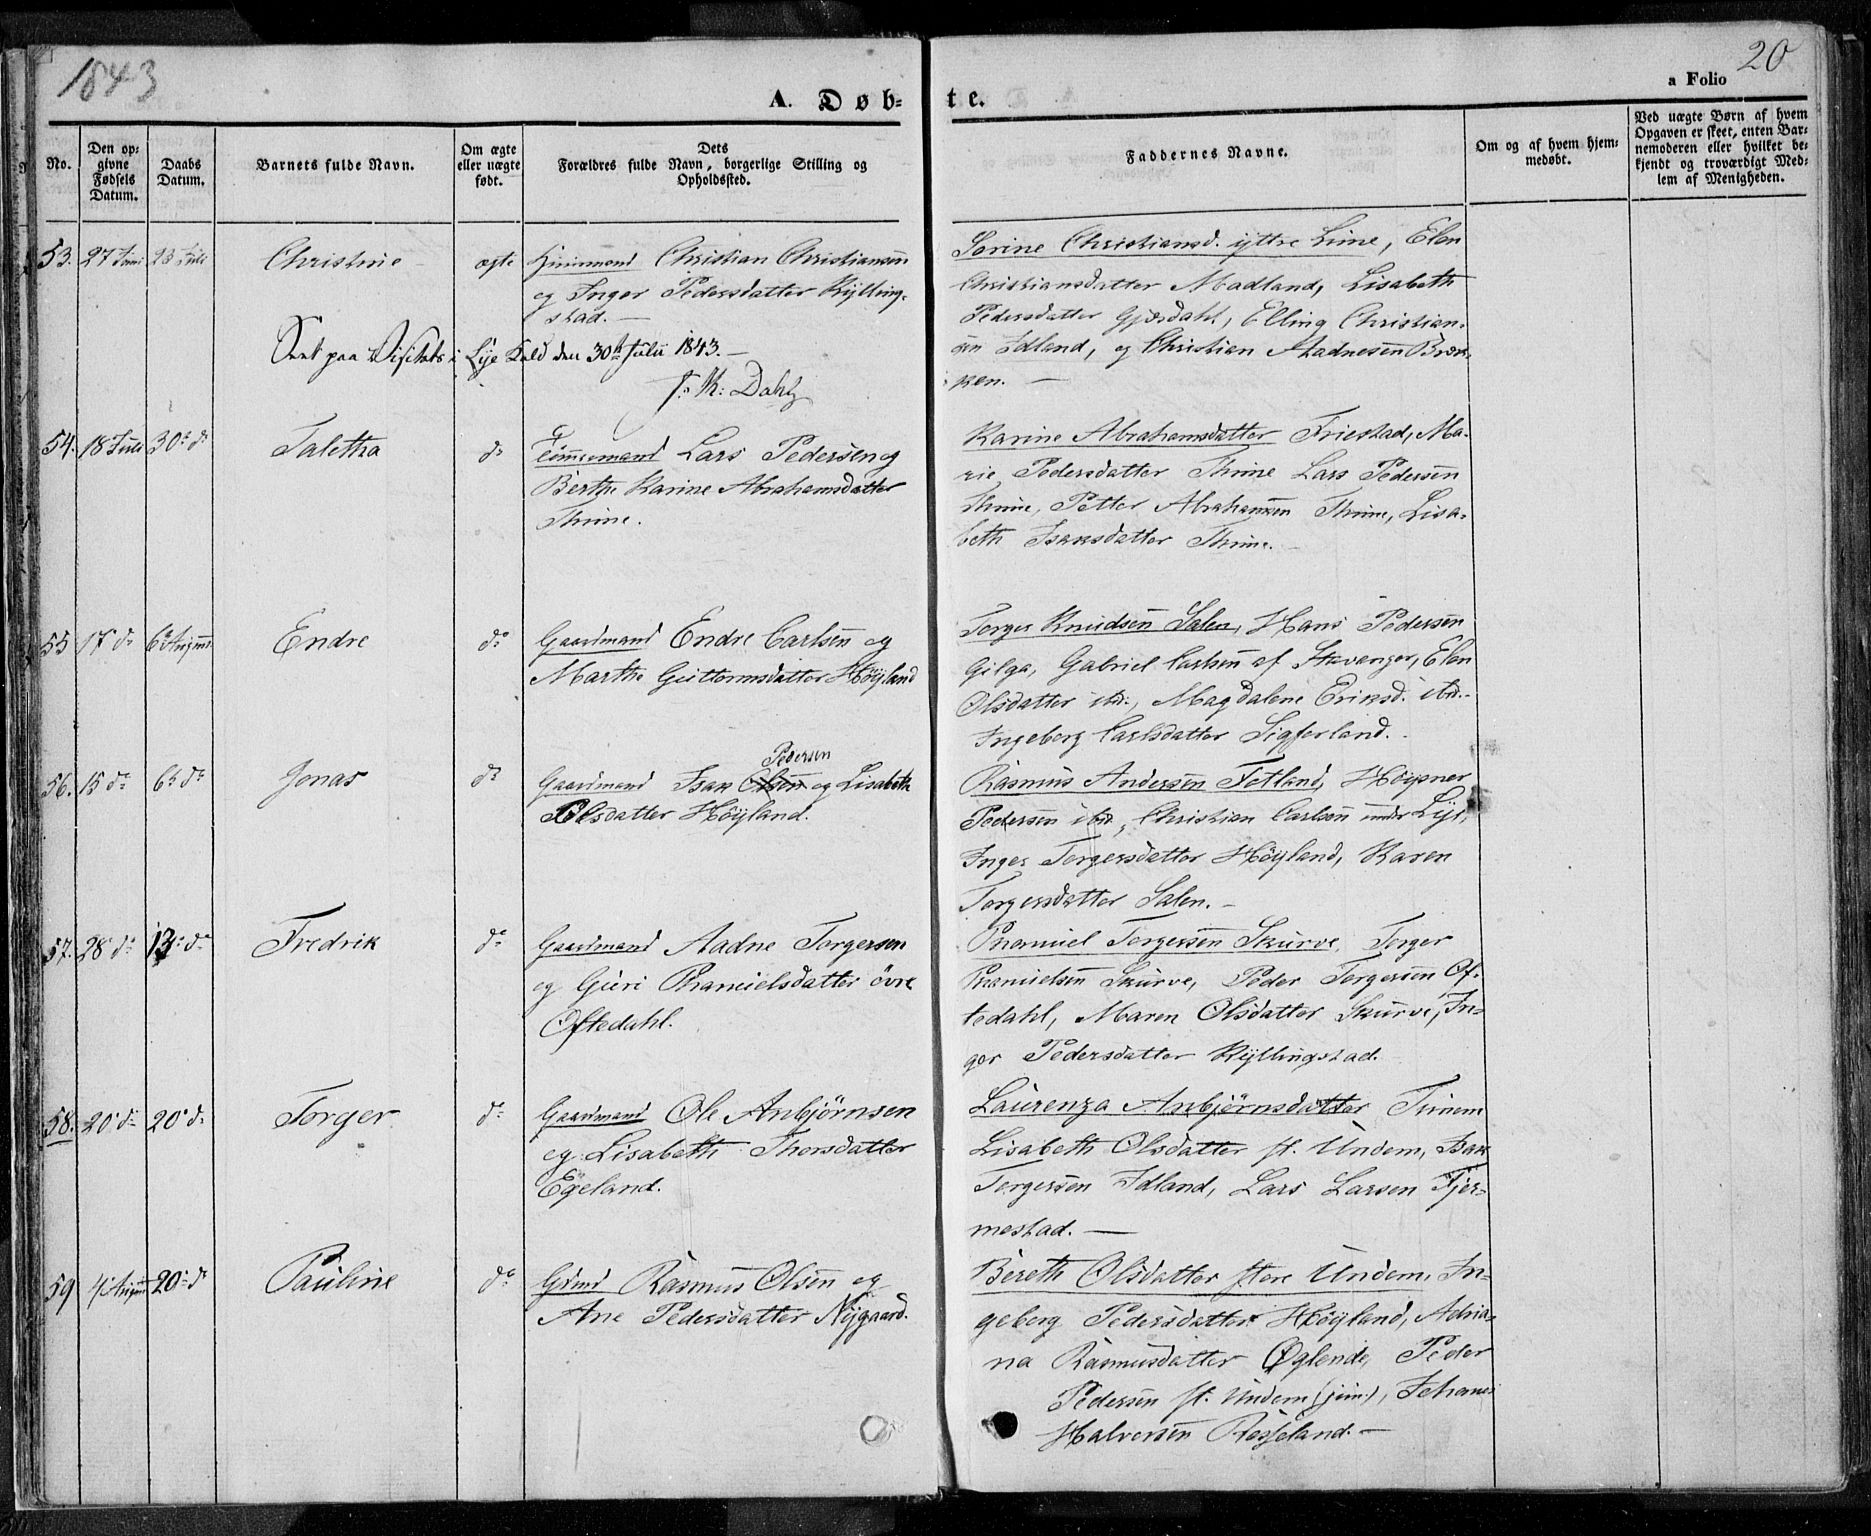 1843
20
A. Døb-
te.
a Folio
No.
Den op-
givne
Fødsels
Datum.
Daabs
Datum.
Barnets fulde Navn.
Om ægte
eller uægte
født.
Dets
Forældres fulde Navn, borgerlige Stilling og
Opholdssted.
Faddernes Navne.
Om og af hvem hjem-
medøbt.
Ved uægte Børn af hvem
Opgaven er skeet, enten Bar-
nemoderen eller hvilket be-
kjendt og troværdigt Med-
lem af Menigheden.
53. 27 Juni 23 Juli Christine ægte Huusmand Christian Christiansen
og Inger Pedersdatter Kylling-
stad. —
Sorine Christiansd. yttre Lime, Elen
Christiansdatter Madland, Lisabeth
Pedersdatter Gjesdahl, Elling Christian-
sen Idland, og Christian Aadnesen Bræk-
ken. —
Seet paa Visitats i Lye Kald den 30te Juli 1843. —
J: K: Dahl
54. 18 Juli 30 d: Taletha d: Tømmermand Lars Pedersen og
Berthe Karine Abrahamsdatter
Thime.
Karine Abrahamsdatter Friestad, Ma-
rie Pedersdatter Thime Lars Pedersen
Thime, Petter Abrahamsen Thime, Lisa-
beth Isaksdatter Thime. —
55 17 d: 6 August Endre d: Gaardmand Endre Carlsen og
Marthe Guttormsdatter Høyland
Torger Knudsen Salen, Hans Pedersen
Gilga, Gabriel Carlsen af Stavanger, Elen
Olsdatter ibd., Magdalene Eriksd. ibd.
Ingeborg Carlsdatter Sigferland.
56. 15 d: 6 d: Jonas d: Gaardmand Isak Olsen Pedersen og Lisabeth
Olsdatter Høyland.
Rasmus Andersen Fotland, Høysner
Pedersen ibd, Christian Carlsen under Lye,
Inger Torgersdatter Høyland, Karen
Torgersdatter Salen. —
57. 28 d: 13 d: Fredrik d: Gaardmand Aadne Torgersen
og Guri Pnanuelsdatter øvre
Oftedahl.
Pnanuel Torgersen Skurve, Torger
Pnanuelsen Skurve, Peder Torgersen Of-
tedahl, Maren Olsdatter Skurve, In-
ger Pedersdatter Kyllingstad.
58. 20 d: 20 d: Torger d: Gaardmand Ole Anbjørnsen
og Lisabeth Thorsdatter
Egeland.
Laurenza Anbjørnsdatter Tunem
Lisabeth Olsdatter st. Undem, Isak
Torgersen Idland, Lars Larsen Fjer-
mestad. —
59 4 August 20 d: Pauline d: Gdmd Rasmus Olsen og
Ane Pedersdatter Nygaard.
Bereth Olsdatter store Undem, In-
geborg Pedersdatter Høyland, Adria-
na Rasmusdatter Øglende, Peder
Pedersen st. Undem (jun.), Johannes
Halversen Røsseland. —